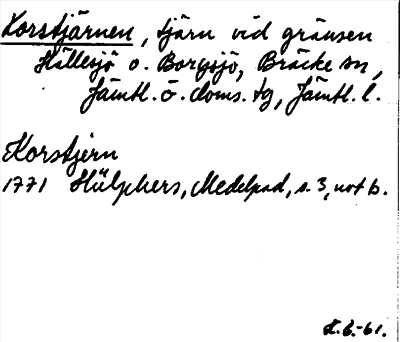 Korstjärnen, tjärn vid gränsen
Hällesjö o. Borgsjö, Bräcke sn,
Jämtl. ö. doms. tg, Jämtl. l.
Korstjern
1771 Hülphers, Medelpad, s. 3, not b.
H. G. -61.